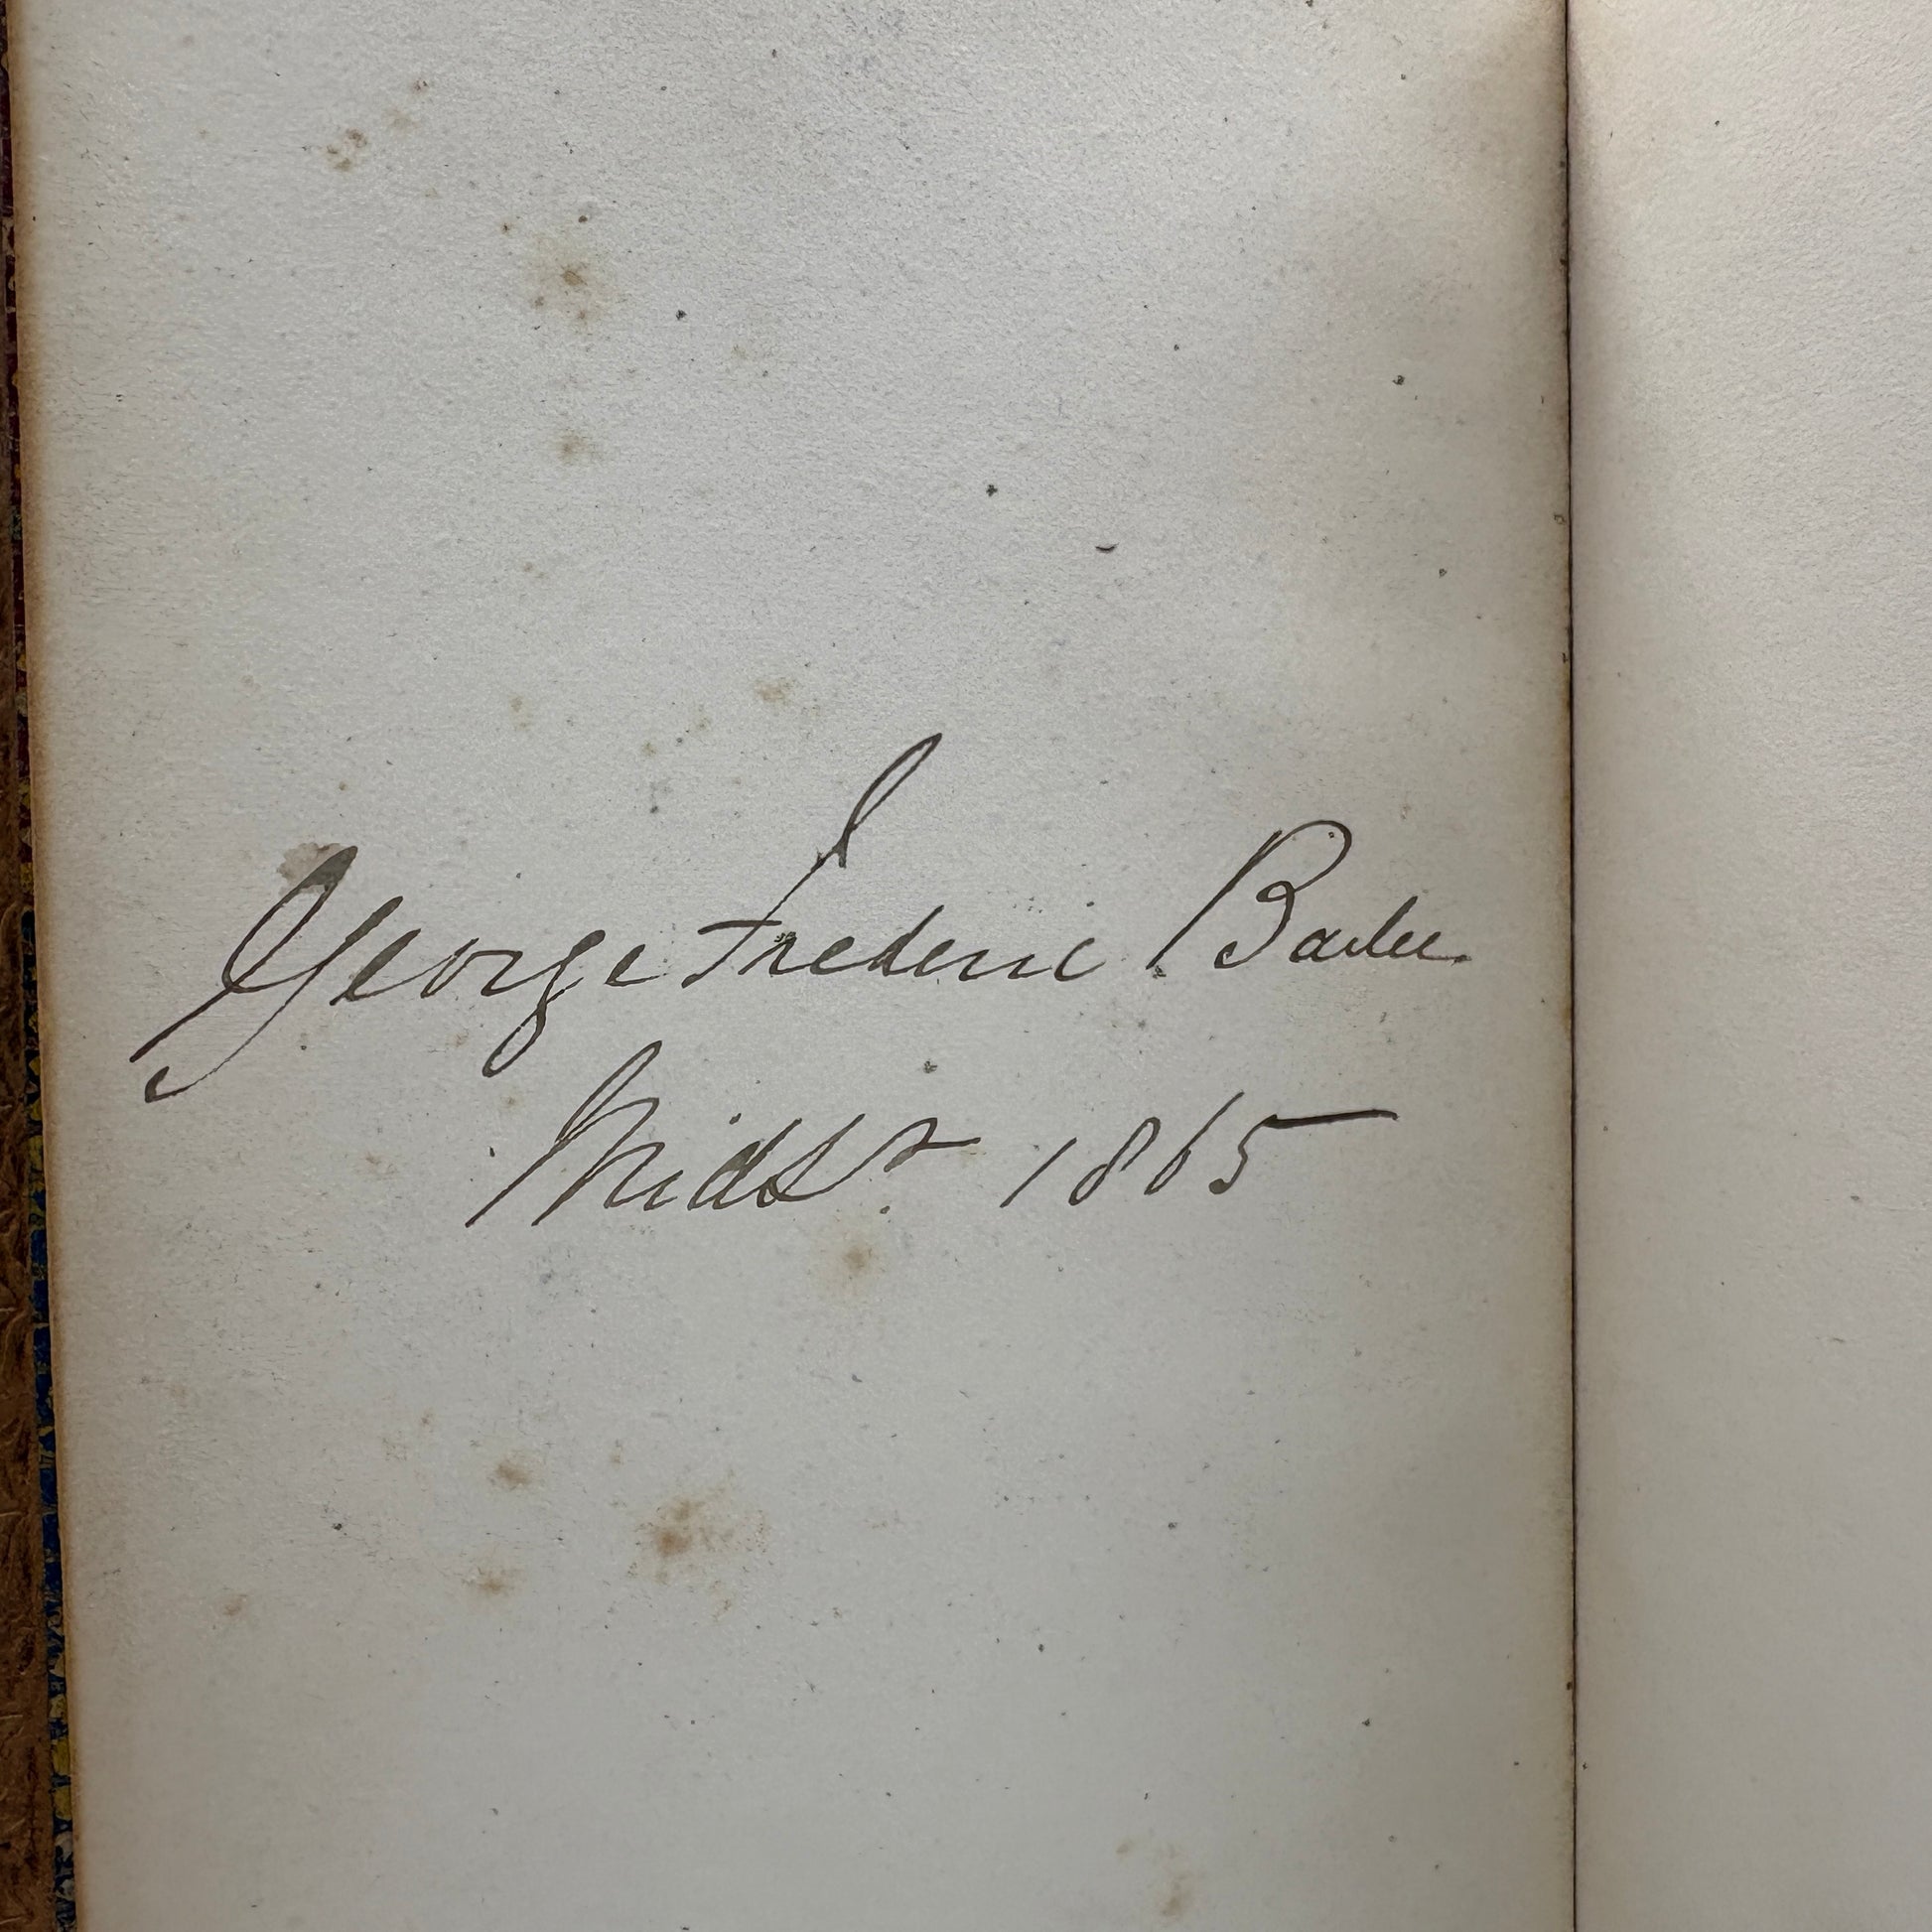 George Frederic Barlee
Midsr. 1865